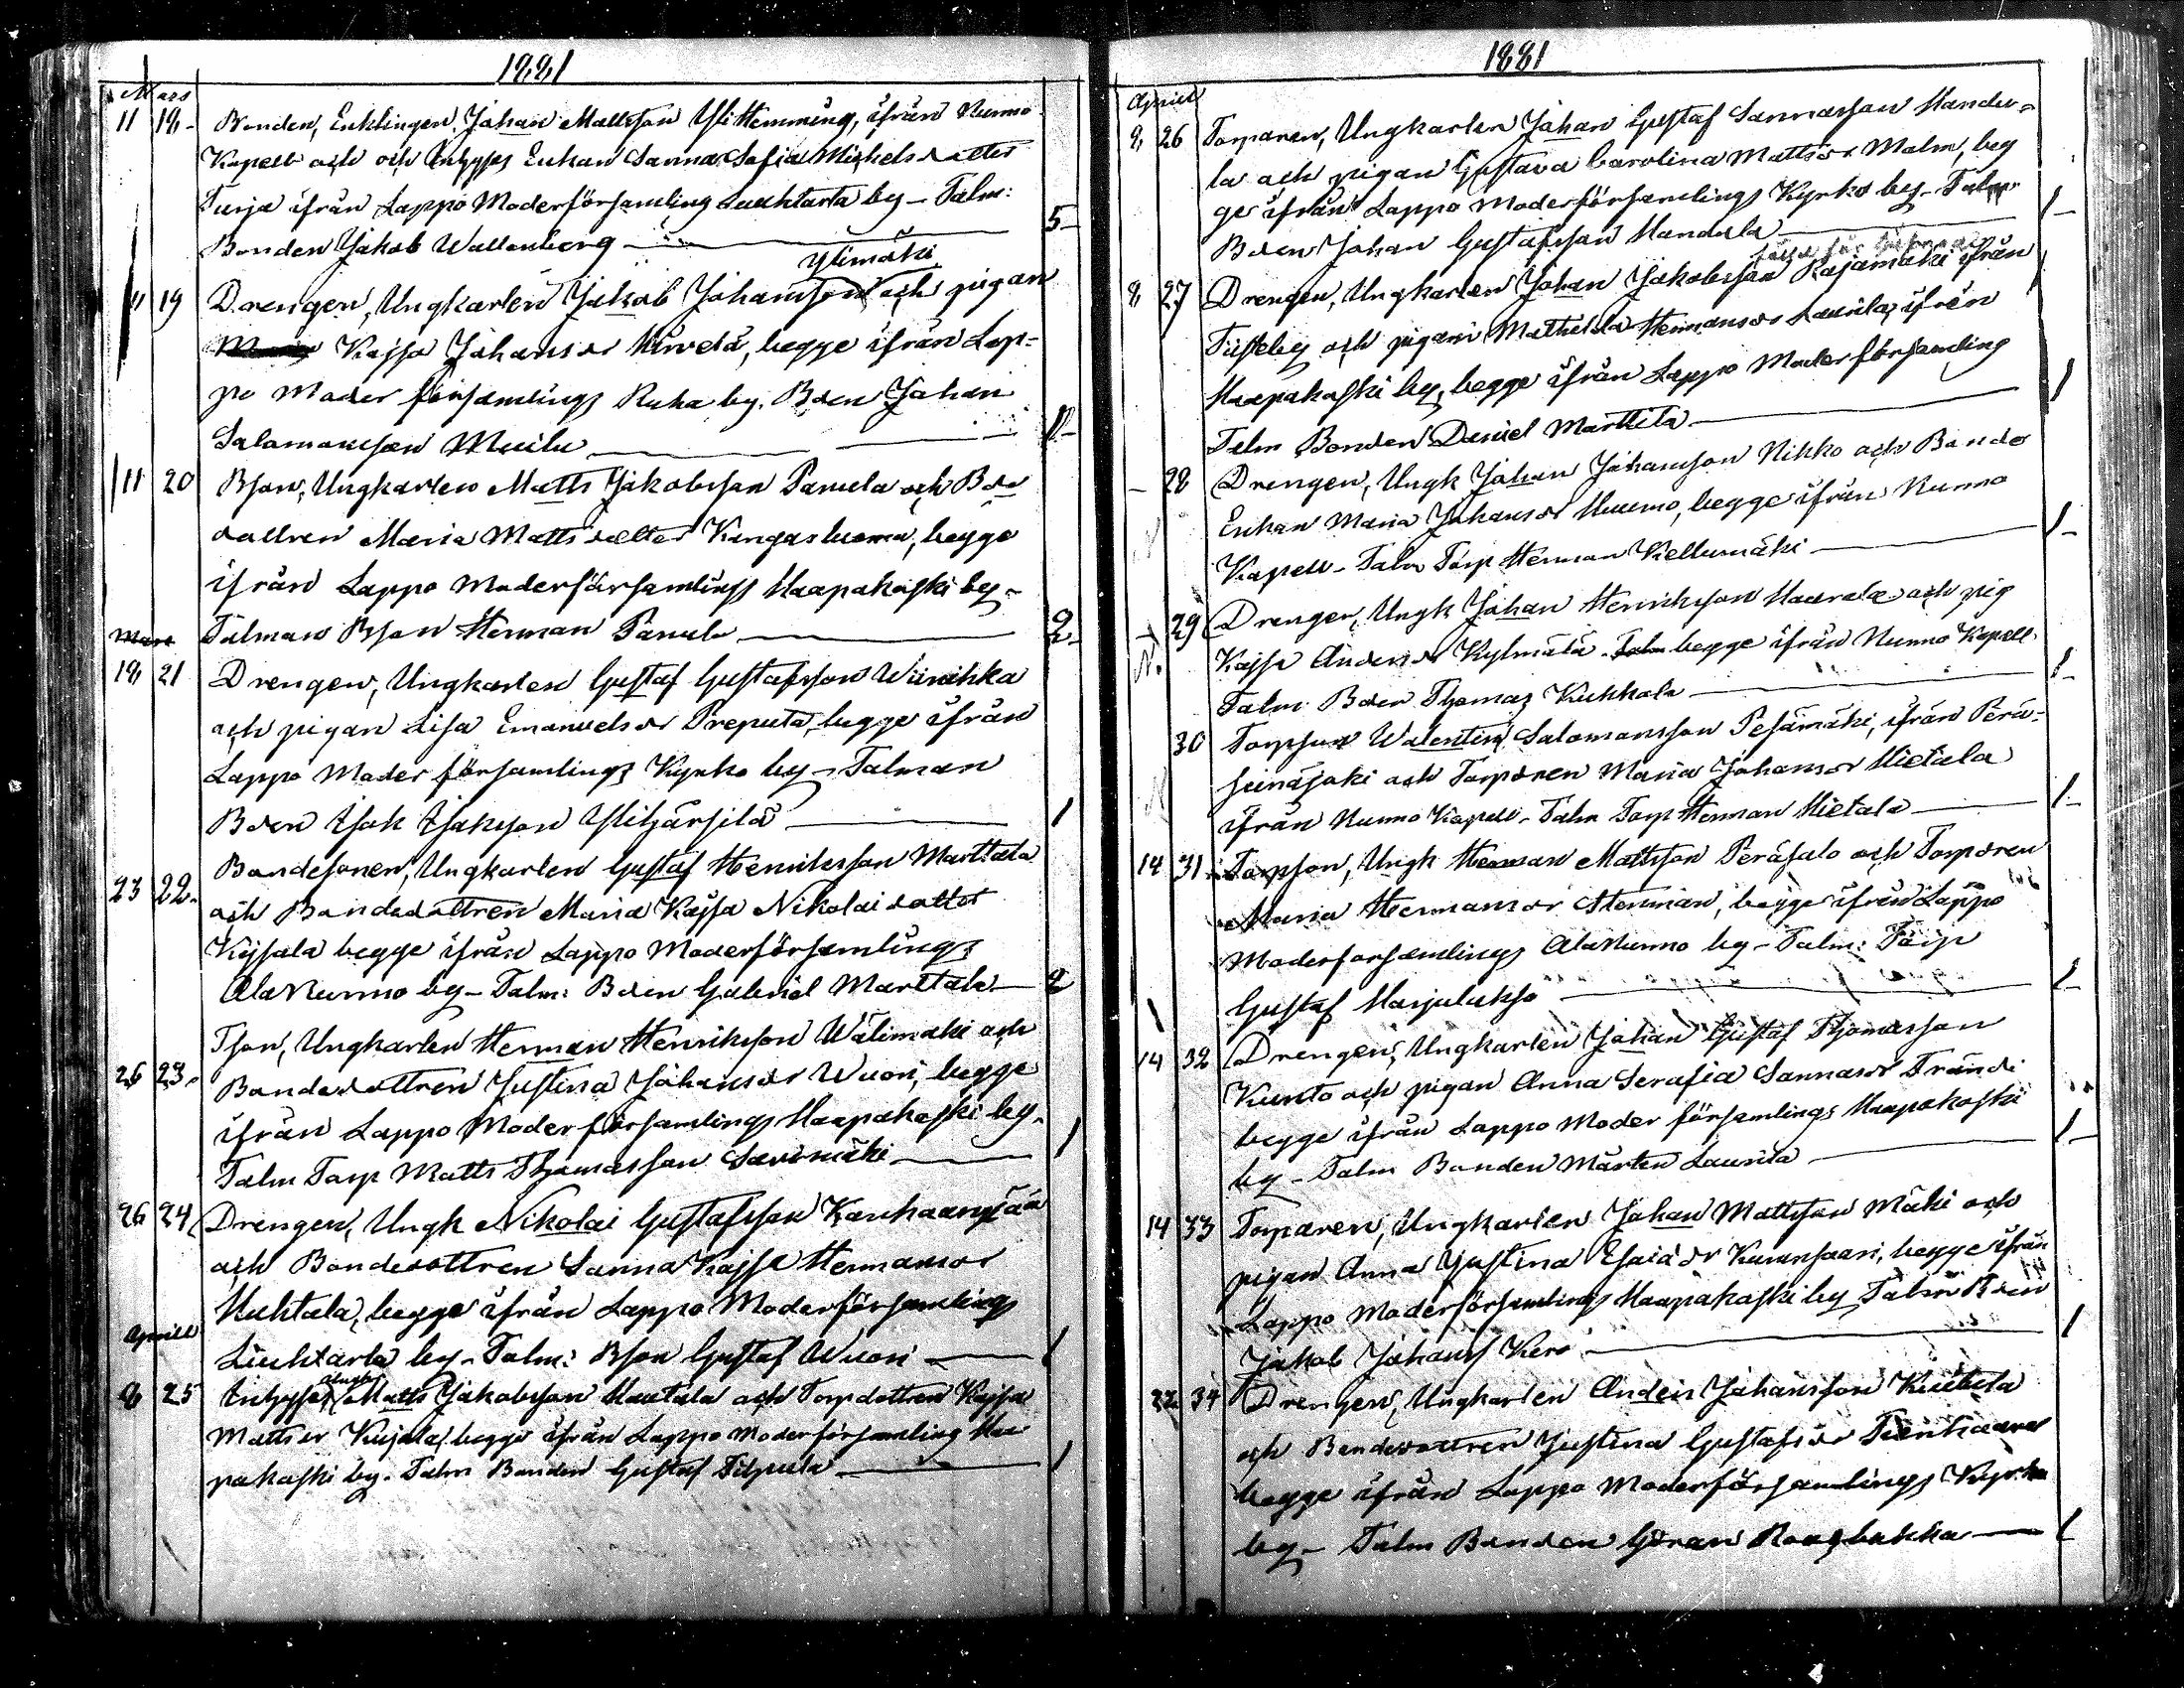 1881
Mars
11 18. Bonden, Enklingen Johan Mattsson Yli Hemming, ifrån Nurmo
Kapell och och Inhyses Enkan Sanna Sofia Michelsdotter
Turja ifrån Lappo Moderförsamling Liuhtarla by – Talm:
Bonden Jakob Wallenberg — 5 –
Ylimäki
11 19 Drengen, Ungkarlen Jakob Johansson och pigan
Kajsa Johansdr Hirvelä, begge ifrån Lap=
po Moderförsamlings Ruha by. Bden Johan
Salomonsson Muilu —
11 20 Bson, Ungkarlen Matts Jakobsson Panula och Bde
dottren Maria Mattsdotter Kangasluoma, begge
ifrån Lappo Moderförsamlings Haapakoski by –
Mars Talman Bson Herman Panula — 2 –
18 21 Drengen, Ungkarlen Gustaf Gustafsson Wiinikka
och pigan Lisa Emanuelsdr Preputa, begge ifrån
Lappo Moderförsamlings Kyrko by – Talman
Bden Isak Isaksson Ylihärsilä — 1
23 22. Bondesonen, Ungkarlen Gustaf Henriksson Marttala
och Bondedottren Maria Kajsa Nikolaidotter
Kujala begge ifrån Lappo Moderförsamlings
AlaNurmo by – Talm: Bden Gabriel Marttala — 2
Tson, Ungkarlen Herman Henriksson Wälimäki och
26 23. Bondedottren Justina Johansdr Wuori, begge
ifrån Lappo Moderförsamlings Haapakoski by.
Talm Torp Matts Thomasson Savimäki — 1
26 24 Drengen, Ungk Nikolai Gustafsson Karhaanpää
och Bondedottren Sanna Kajsa Hermansdr
Huhtala, begge ifrån Lappo Moderförsamlings
Aprill Liuhtarla by – Talm: Bson Gustaf Wuori — 1
8 25 Inhyses Matts Jakobsson Hautala och Torpdottren Kajsa
Mattsdr Kujala, begge ifrån Lappo Moderförsamling Haa
pakoski by. Talm Bonden Gustaf Filpula — 1
1881
Aprill
8 26 Torparen, Ungkarlen Johan Gustaf Sannasson Handu=
la och pigan Gustava Carolina Mattsdr Malm, beg
ge ifrån Lappo Moderförsamlings Kyrko by – Talm
Bden Johan Gustafsson Handula — 1 –
8 27 Drengen, Ungkarlen Johan Jakobsson Rajamäki ifrån
Tiisteby och pigan Mathilda Hermansdr Laurila, ifrån
Haapakoski by, begge ifrån Lappo Moderförsamling
Talm Bonden Daniel Marttila — 1
– 28 Drengen, Ungk Johan Johansson Nikko och Bonde
Enkan Maria Johansdr Huumo, begge ifrån Nurmo
Kapell – Talm Torp Herman Kellumäki — 1 –
29 Drengen, Ungk Johan Henriksson Haurala och pig
Kajsa Andersdr Kylmälä begge ifrån Nurmo Kapell.
Talm Bden Thomas Kukkola — 1 –
30 Torpson Walentin Salomonsson Pesämäki, ifrån Perä=
seinäjoki och Torpdren Maria Johansdr Hietala
ifrån Nurmo Kapell – Talm Torp Herman Hietala — 1 –
14 31 Torpson, Ungk Herman Mattsson Peräsalo och Torpdren
Maria Hermansdr Stenman, begge ifrån Lappo
Moderforsamlings AlaNurmo by – Talm: Torp
Gustaf Harjulukso — 1 –
14 32 Drengen, Ungkarlen Johan Gustaf Thomasson
Kunto och pigan Anna Serafia Sannasdr Frändi
begge ifrån Lappo Moderförsamlings Haapakoski
by – Talm Bonden Mårten Laurila — 1 –
14 33 Torparen, Ungkarlen Johan Mattsson Mäki och
pigan Anna Justina Esaiadr Kurunsaari, begge ifrån
Lappo Moderförsamlings Haapakoski by Talm Bden
Jakob Johanss Kero — 1
22 34 Drengen, Ungkarlen Anders Johansson Kiikula
och Bondedottren Justina Gustafsdr Tienhaara
begge ifrån Lappo Moderförsamlings Kyrko
by – Talm Bonden Göran Roosbakka — 1